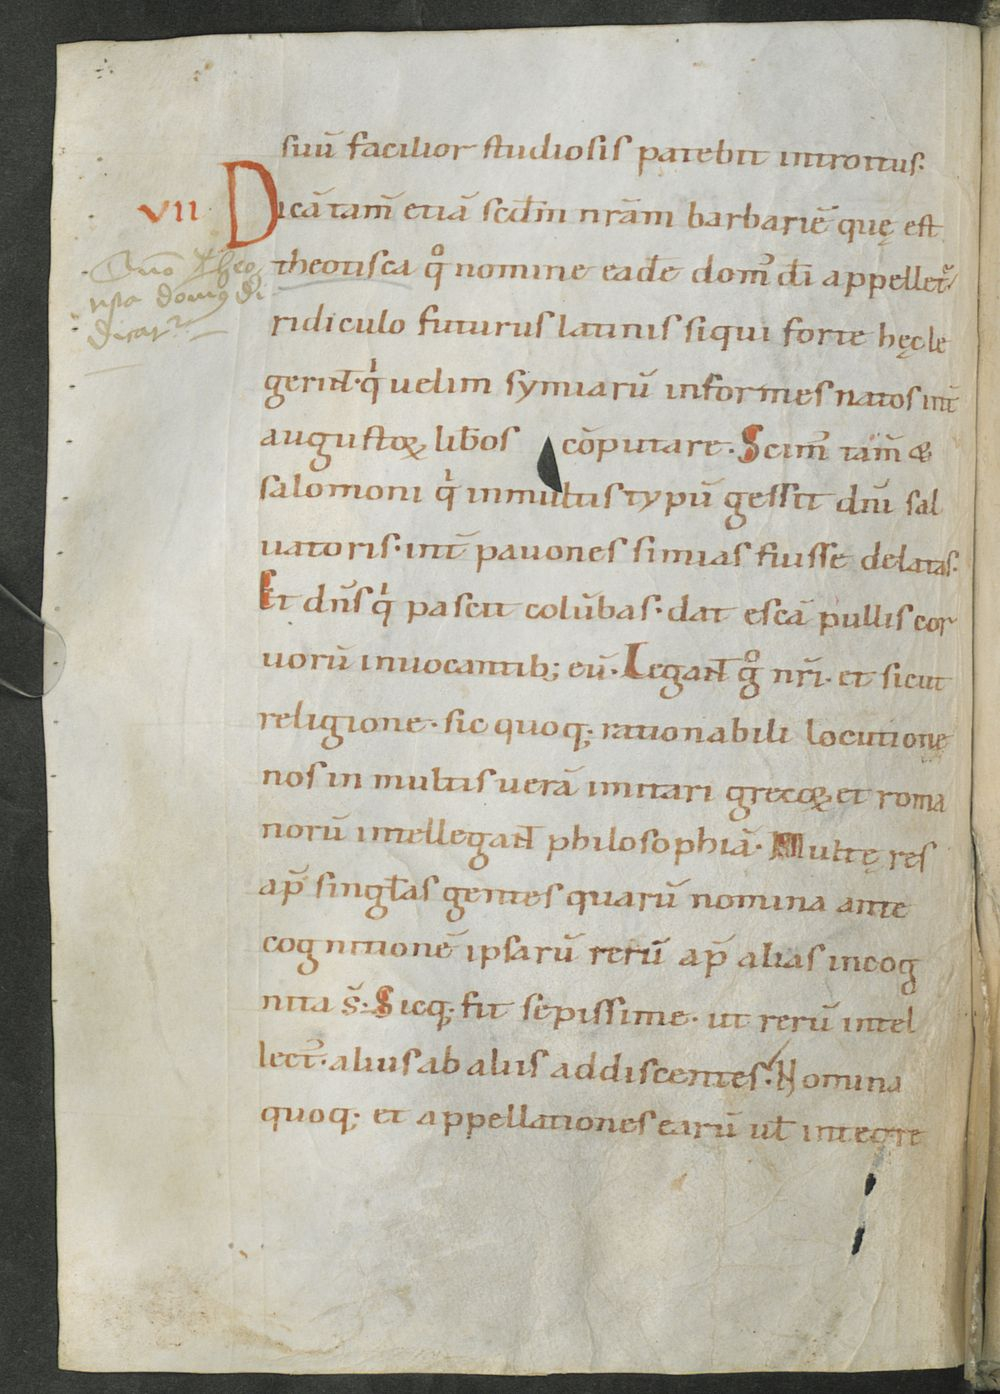 siuū facilior studiosis patebit introitus.
VII Dicā tam̄ etiā scd̄m nrām barbariē quę est
theotisca qͦ nomine eadē dom᷒ dī appelletᷣ
Quo Theo
tista domus di
dicatr
ridiculo futurus latinis siqui forte hęc le
gerint̄· qͥ uelim symiarū informes natos int̄
augustoꝝ lib̄os cōputare. Scim᷒ tam̄ &
salomoni qͥ inmultis typū gessit dn̄i sal
uatoris· int̄ pauones simias fuisse delatas.
Et dn̄s qͥ pascit colūbas· dat escā pullis cor
uorū inuocantib; eū. Legant̄ gͦ nr̄i· et sicut
religione· sic quoq; rationabili locutione
nos in multis uerā imitari grecoꝝ et roma
norū intellegant̄ philosophiā. Multę res
ap̄ singl̄as gentes quarū nomina ante
cognitionē ipsarū rerū ap̄ alias incog
nita s̄. Sicq; fit sepissime· ut rerū intel
lect᷒· alius ab aliis addiscentes. Nomina
quoq; et appellationes earū ul̄ integre